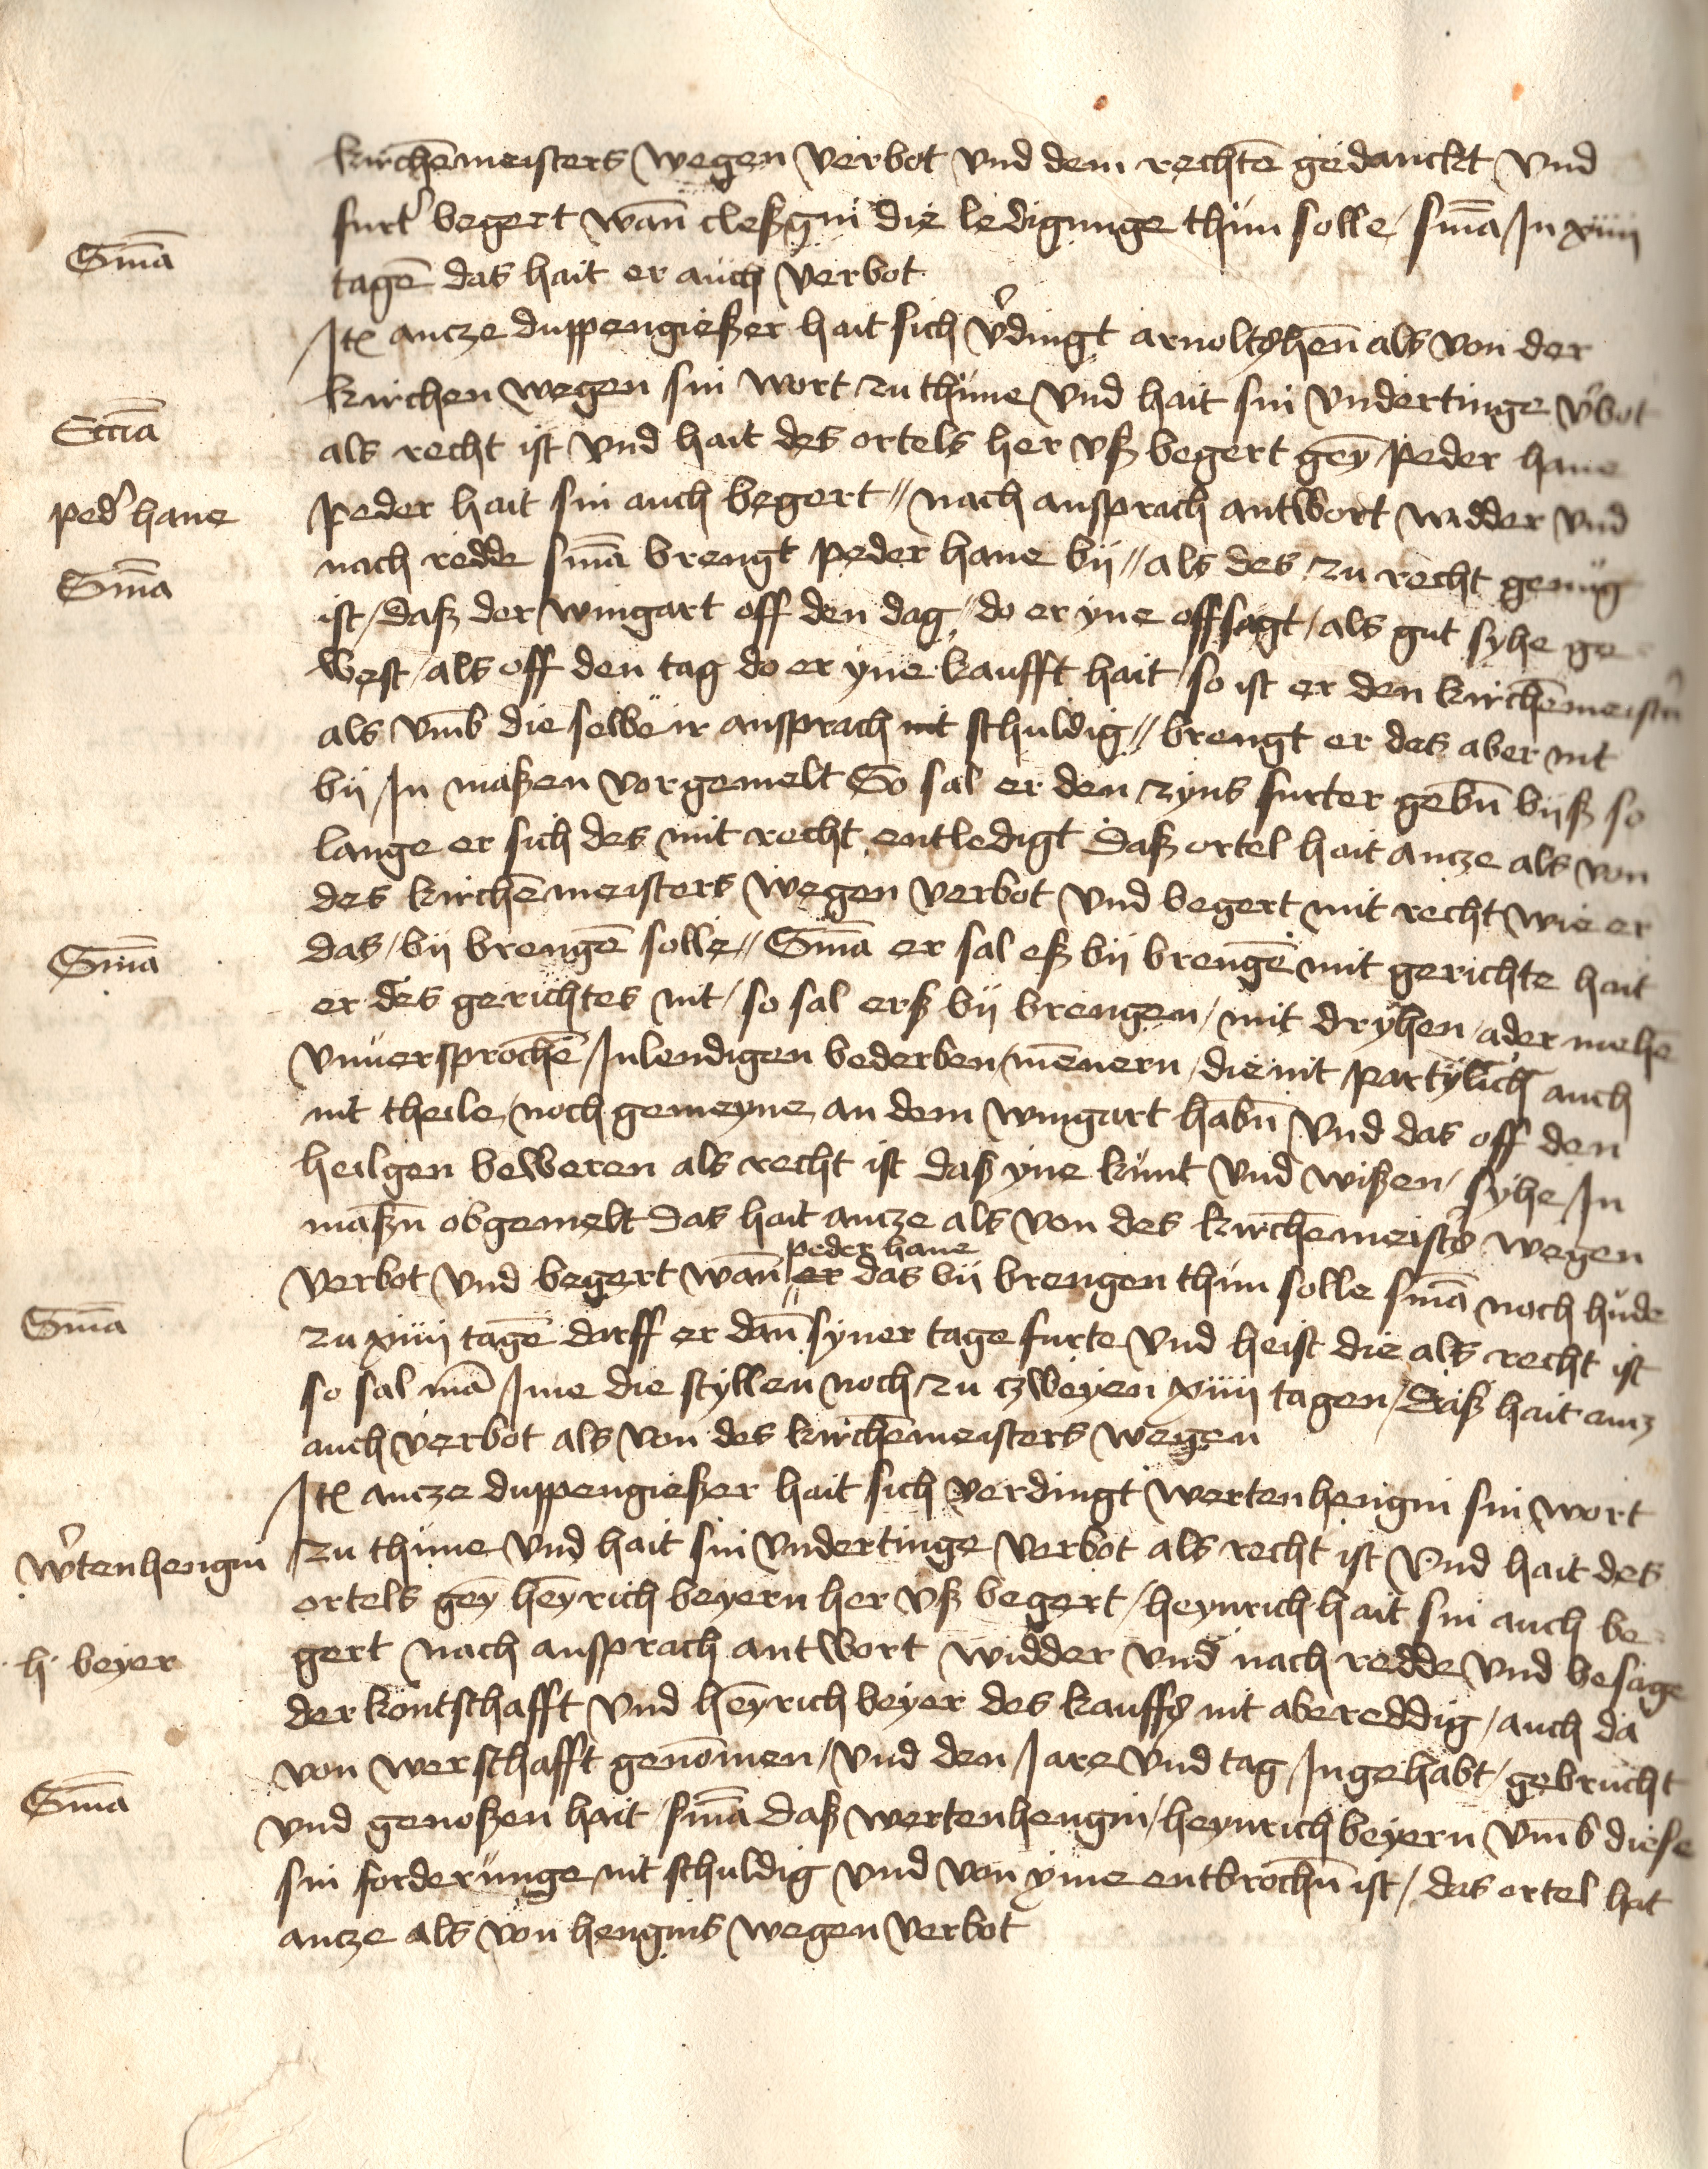 kirchēmeisters wegen verbot vnd dem rechtē gedanckt vnd
furt' begert wān cleßgin die ledigunge thün solle / sniā In xiiii
Sniā
tagē das hait er auch verbot
Itē ancze duppengießer hait sich v'dingt arnoltshen̄ als von der
kirchen wegen sin wort zu thüne vnd hait sin vndertinge v'bot
Eccīa
als recht ist vnd hait des ortels her vß begert gēy peder hane
ped' hane
peder hait sin auch begert // nach ansprach antwort widder vnd
nach redde sniā brengt peder hane bÿ // als des zu recht genüg
Sniā
ist / daß der wingart off den dag / do er yne offsagt / als gut syhe ge
west / als off den tag do er yne kaufft hait / so ist er den kirchēmeist'n
als vm̄b die selbe ir ansprach nit schuldig // brengt er des aber nit
bÿ In maßen vorgemelt So sal er den zyns furter gebn̄ bÿß so
lange er sich des mit recht entledigt daß ortel hait ancze als von
des kirchēmeisters wegen verbot vnd begert mit recht wie er
das / bÿ brengē solle // Sniā er sal eß bÿ brengē mit gerichte hait
Sniā
er des gerichtes nit / so sal erß bÿ brengen / mit dryhen / ader mehe
vnuersprochē / Inlendigen bederben / mēnern / die nit partylich auch
nit theile / noch gemeyne an dem wingart habn̄ vnd das off den
heilgen beweren als recht ist daß yne kunt vnd wißen / syhe In
maßn̄ obgemelt das hait ancze als von des kirchēmeist's wegen
peder hane
verbot vnd begert wān er das bÿ brengen thün solle sniā noch hude
Sniā
zu xiiii tagē darff er dān syner tage furte vnd heist die als recht ist
so sal mā Ime die styllen noch zu czweyen xiiii tagen / daß hait ancz
auch verbot als von des kirchēmeisters wegen
Itē ancze duppengießer hait sich verdingt wertenhengin sin wort
w'tenhengin
zu thüne vnd hait sin vndertinge verbot als recht ist vnd hait des
ortels gēy hēyrich beyern her vß begert / heynrich hait sin auch be
h beyer
gert nach ansprach antwort widder vnd nach redde vnd besage
der kontschafft vnd hēyrich beyer des kauffs nit abereddig / auch da
von werschafft genōmen / vnd den Jare vnd tag / Ingehabt / gebrucht
Sniā
vnd genoßen hait / sniā daß wertenhengin / heynrich beyern vm̄b diese
sin forderünge nit schuldig vnd von yme entbrochn̄ ist / das ortel hait
ancze als von hengins wegen verbot